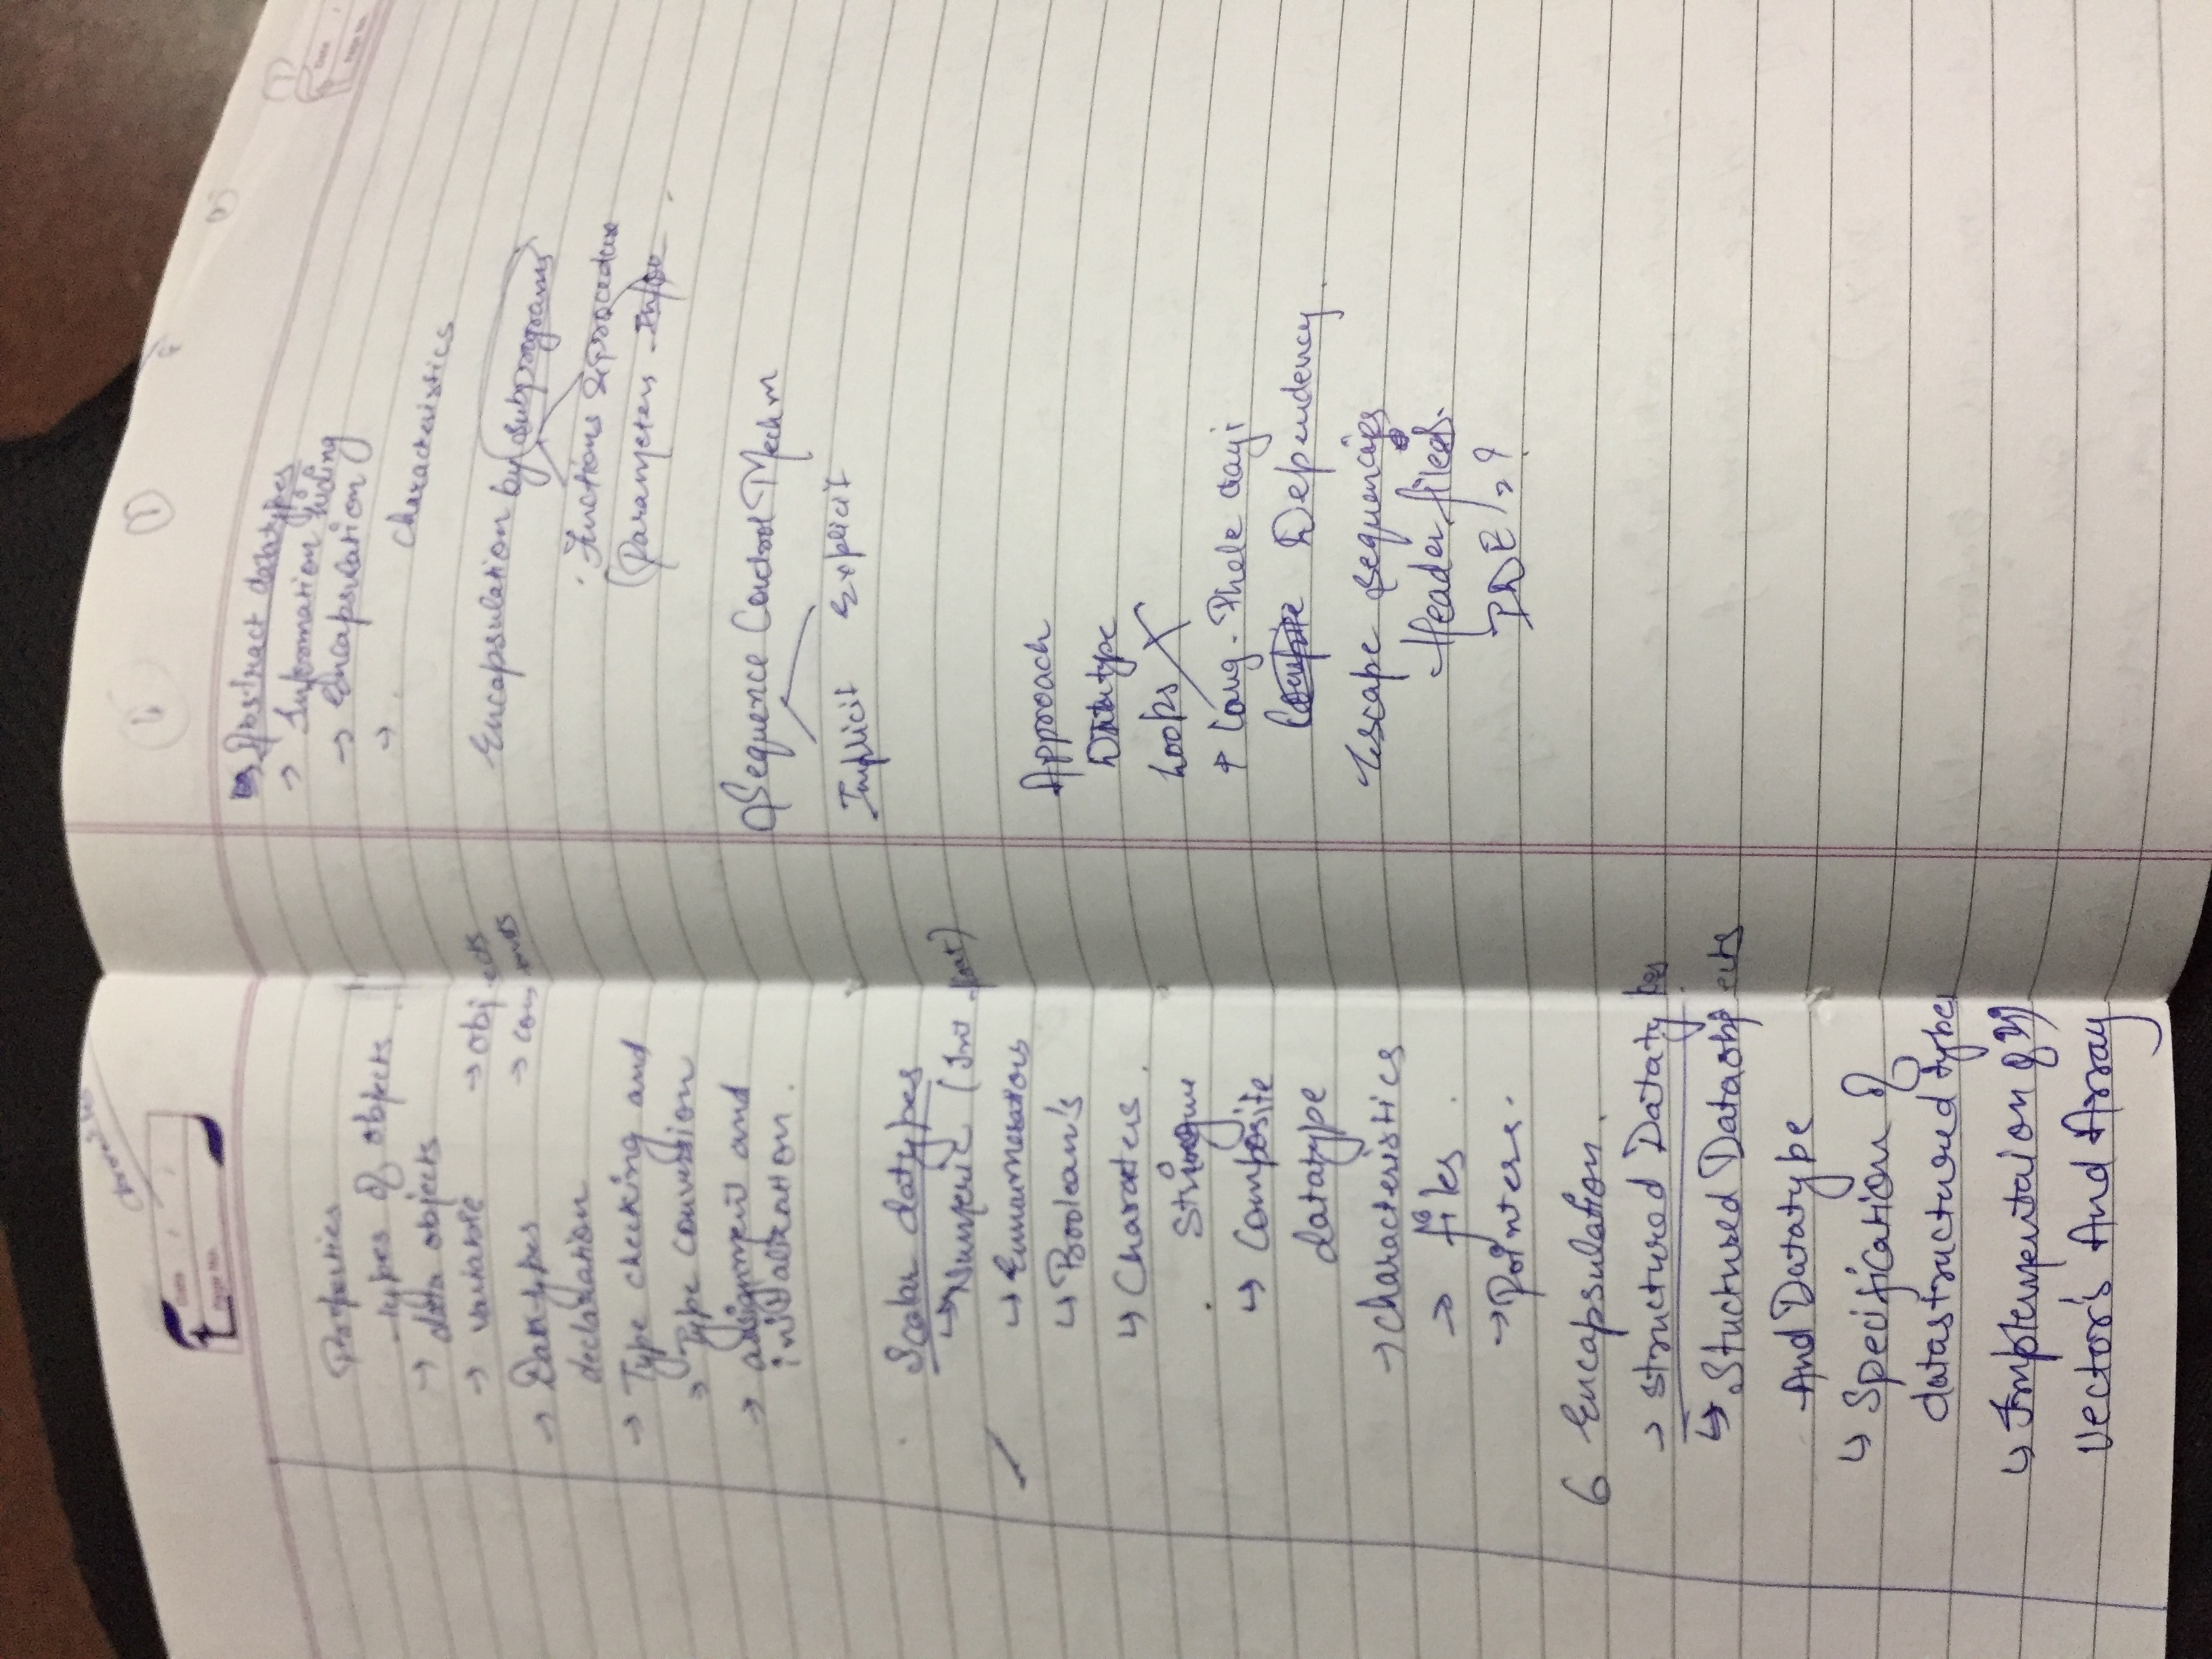 Date / /
Page No.
Properties
types of objects
→ data objects
→ variable → objects
→ Datatypes
declaration
→ Type checking and
→ Type conversion
→ assignment and
initialization.
Scalar datypes
↳ Numeric (Int float)
↳ Enumerations
↳ Boolean's
↳ Characters.
↳ Composite
datatype
→ characteristics
→ files.
→ Pointers.
6 Encapsulation.
→ Structured Datatypes
↳ Stuctured Dataobjects
And Datatype
↳ Specification of
datastructured types
↳ Implementaion of
Vector's And Array
Abstract datatypes
→ Information hiding
→ Encapsulation
→ .
Characteristics
Encapsulation by subprograms
Functions & procedure
(Parameters
Sequence Control Mechm
Implicit Explicit
Approach
Datatype
Loops X
Lang. Phele
Dependency.
Escape sequencies
Header files.
IDE = ?
Date
Page No.